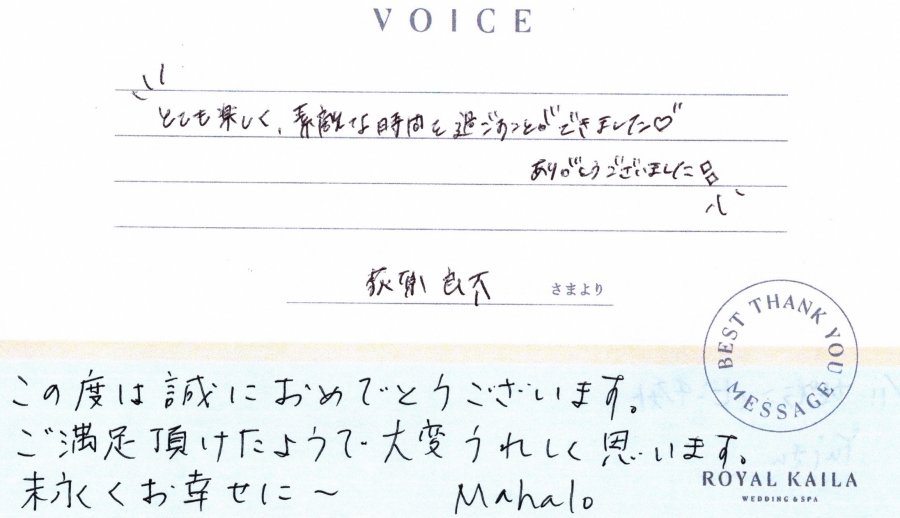 VOICE
とても楽しく、素敵な時間を過ごすことができました♡
ありがとうございました
良介 さまより
BEST THANK YOU MESSAGE
この度は誠におめでとうございます。
ご満足頂けたようで大変うれしく思います。
末永くお幸せに〜 Mahalo
ROYAL KAILA
WEDDING & SPA